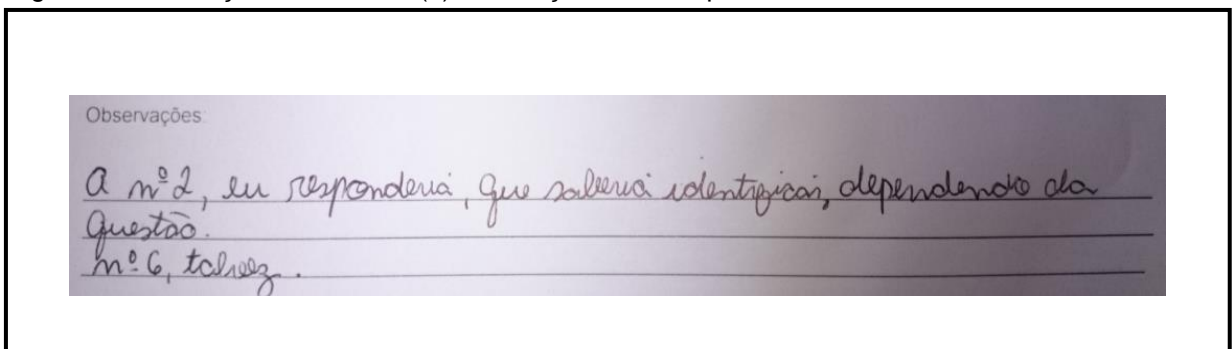 Observações:
A nº 2, eu responderia, que saberia identificar, dependendo da
questão.
nº 6, talvez.